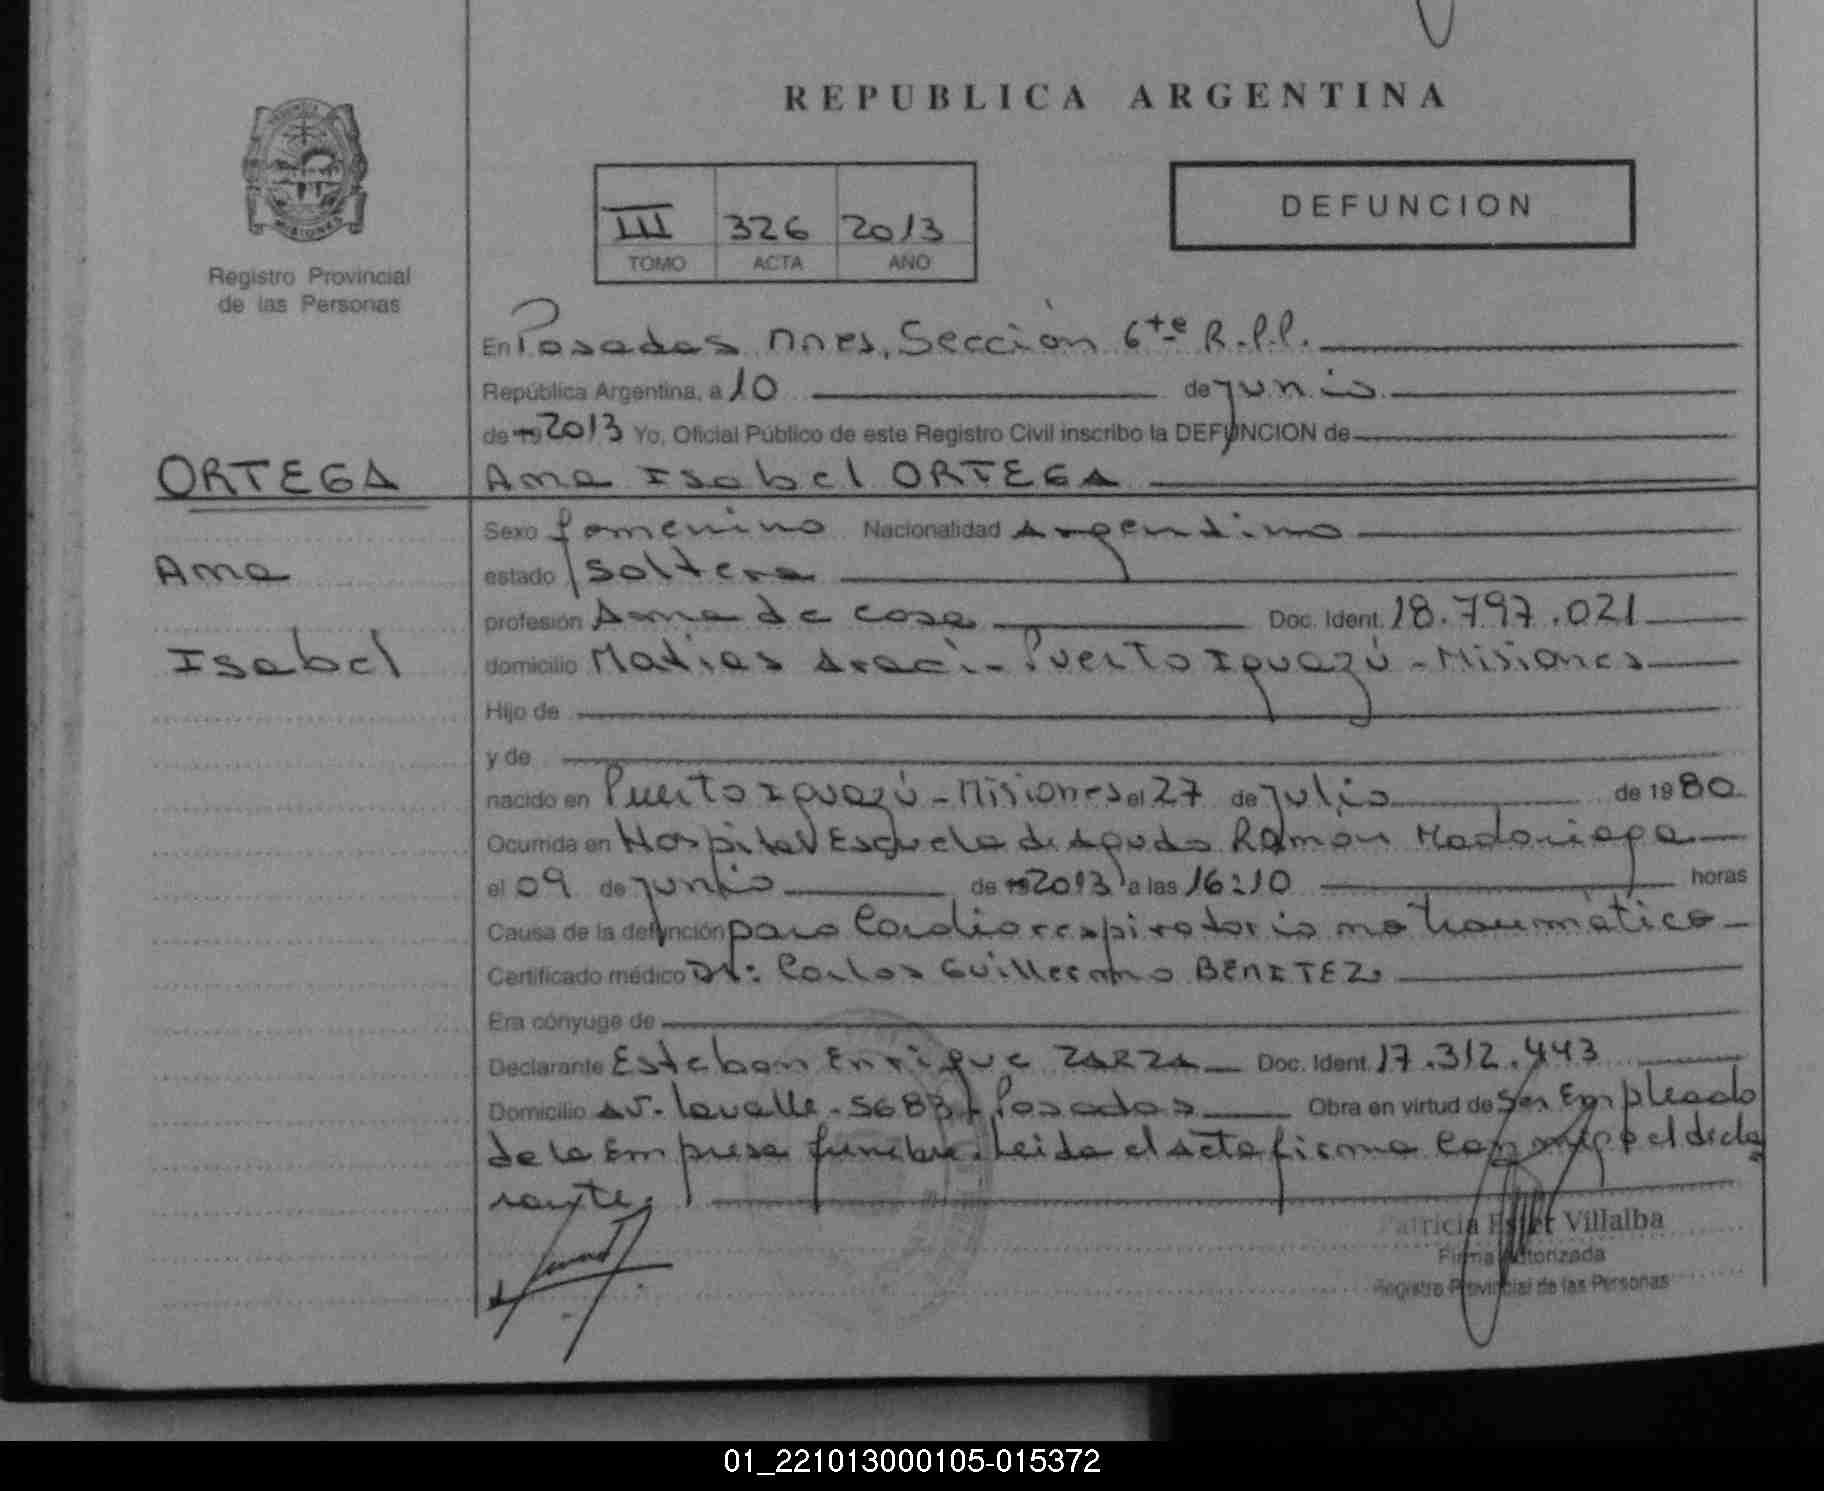 REPUBLICA ARGENTINA
DEFUNCION
III 326 2013
TOMO ACTA AÑO
Registro Provincial
de las Personas
En Posadas Mnes, Sección 6ta R.P.P.
República Argentina, a 10 de junio
de 19 2013 Yo, Oficial Público de este Registro Civil inscribo la DEFUNCION de
ORTEGA
Ana Isabel ORTEGA
Ana
Isabel
Sexo femenino Nacionalidad Argentina
estado soltera
profesión Ama de casa Doc. Ident. 18.797.021
domicilio Matias - Puerto Iguazú - Misiones
Hijo de
y de
nacido en Puerto Iguazú - Misiones el 27 de julio de 1980
Ocurrida en Hospital Escuela de Agudos Ramón Madariaga
el 09 de junio de 19 2013 a las 16:10 horas
Causa de la defunción paro Cardiorespiratorio no traumático
Certificado médico Dr: Carlos Guillermo BENITEZ
Era cónyuge de
Declarante Esteban Enrique ZARZA Doc. Ident. 17.312.443
Domicilio Av. Lavalle - 5683 - Posadas Obra en virtud de ser Empleado
de la Empresa funebre. Leida el acta firma conmigo el decla
rante
Patricia Ester Villalba
Firma Autorizada
Registro Provincial de las Personas
01_221013000105-015372